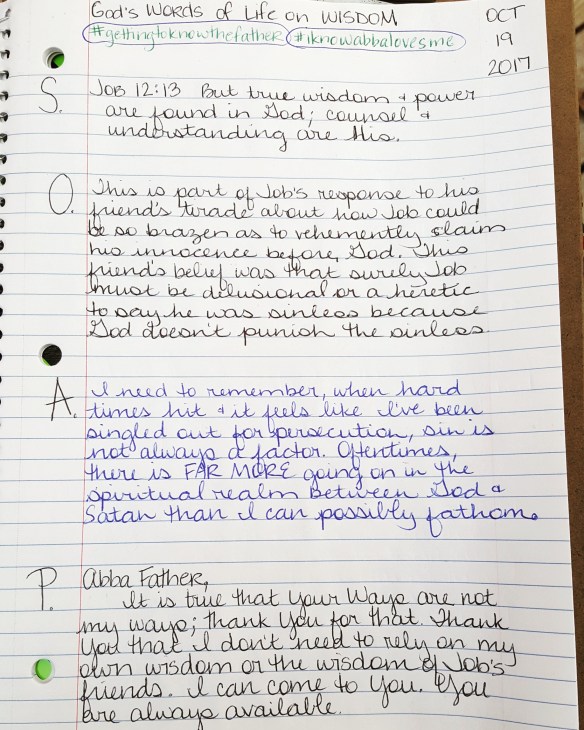 God's Words of Life on WISDOM
#gettingtoknowthefather #iknowabbalovesme
OCT
19
2017
S. Job 12:13 But true wisdom & power
are found in God; counsel &
understanding are His.
O. This is part of Job's response to his
friend's tirade about how Job could
be so brazen as to vehemently claim
his innocence before God. This
friend's belief was that surely Job
must be delusional or a heretic
to say he was sinless because
God doesn't punish the sinless.
A. I need to remember, when hard
times hit & it feels like I've been
singled out for persecution, sin is
not always a factor. Oftentimes,
there is FAR MORE going on in the
spiritual realm between God &
Satan than I can possibly fathom.
P. Abba Father,
It is true that Your Ways are not
my ways; thank You for that. Thank
You that I don't need to rely on my
own wisdom or the wisdom of Job's
friends. I can come to You. You
are always available.